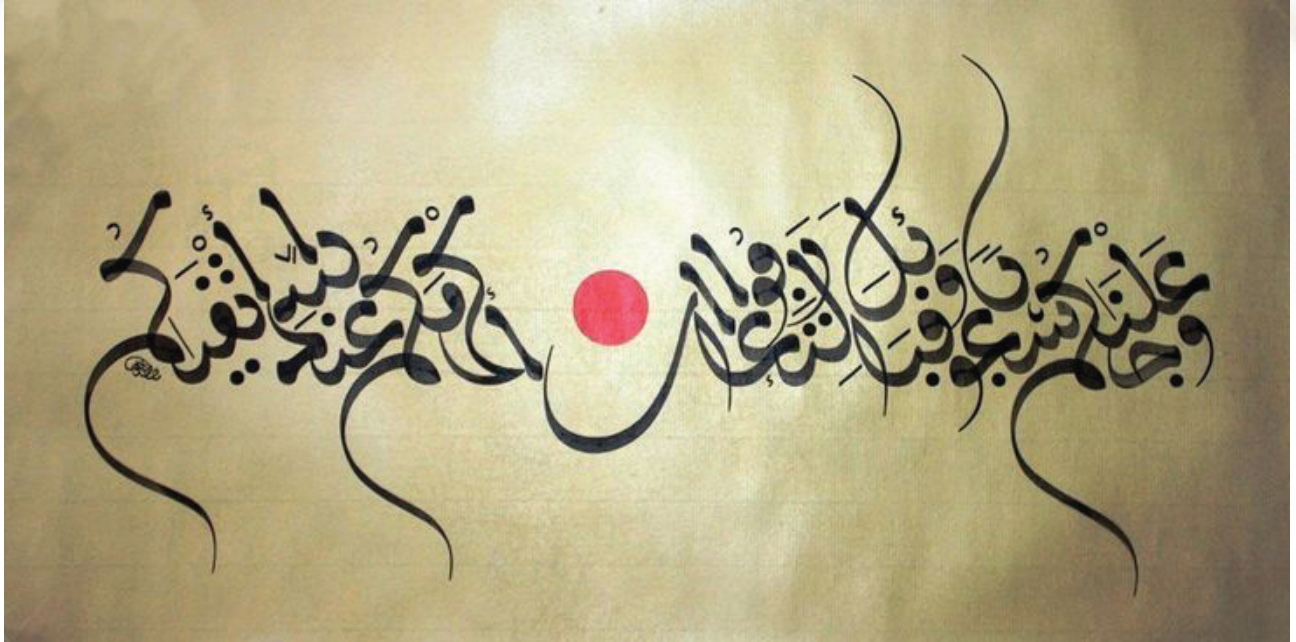 وَجَعَلْنَٰكُمْ شُعُوبًا وَقَبَائِلَ لِتَعَارَفُوا إِنَّ أَكْرَمَكُمْ عِنْدَ اللَّهِ أَتْقَىٰكُمْ